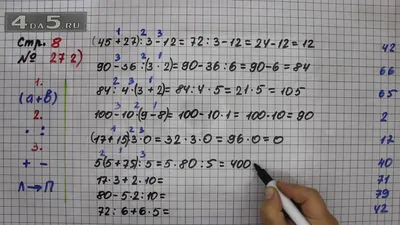 4da5.ru
Стр. 8
№ 27 2)
1.
(а+в)
2.
· :
3.
+ −
Л→П
1 2 3
(45+27):3−12=72:3−12=24−12=12
3 2 1
90−36:(3·2)=90−36:6=90−6=84
2 3 1
84:4·(3+2)=84:4·5=21·5=105
3 2 1
100−10·(9−8)=100−10·1=100−10=90
1 2 3
(17+15)·3·0=32·3·0=96·0=0
2 1 3
5(5+75):5=5·80:5=400
17·3+2·10=
80−5·2:10=
72:6+6·5=
42
66
65
2
17
40
71
79